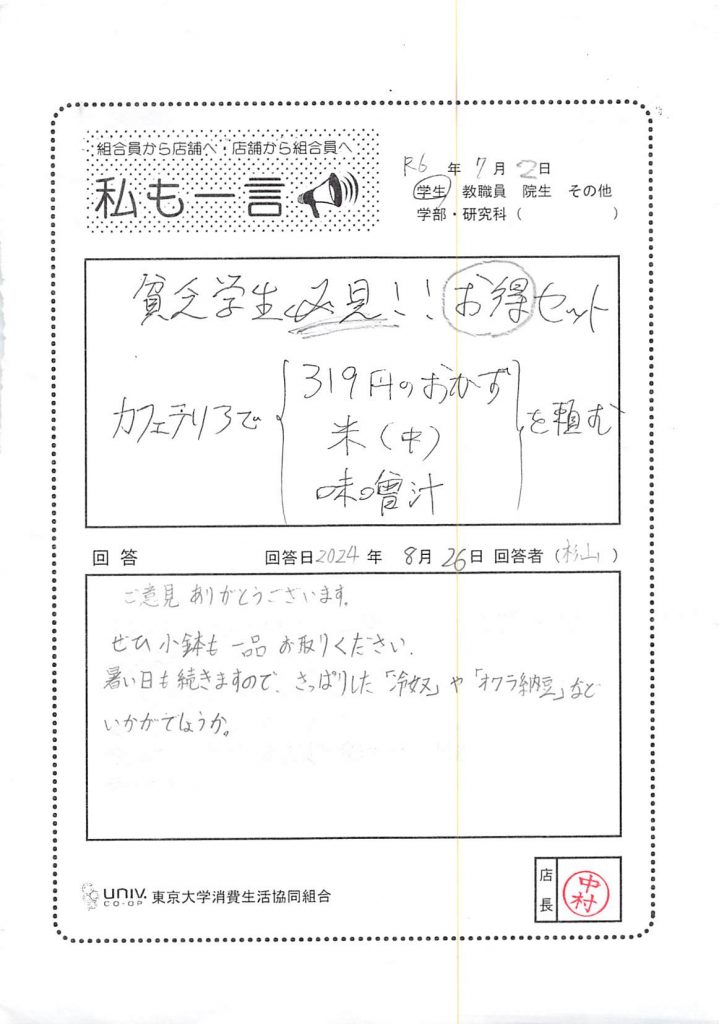 組合員から店舗へ・店舗から組合員へ
私も一言
R6 年 7 月 2 日
学生 教職員 院生 その他
学部・研究科( )
貧乏学生必見!!お得セット
カフェテリアで
319円のおかず
米(中)
味噌汁
を頼む
回答 回答日 2024 年 8月 26日 回答者 (杉山)
ご意見ありがとうございます。
ぜひ小鉢も一品お取りください。
暑い日も続きますので、さっぱりした「冷奴」や「オクラ納豆」など
いかがでしょうか。
UNIV. CO-OP 東京大学消費生活協同組合
店長
中村